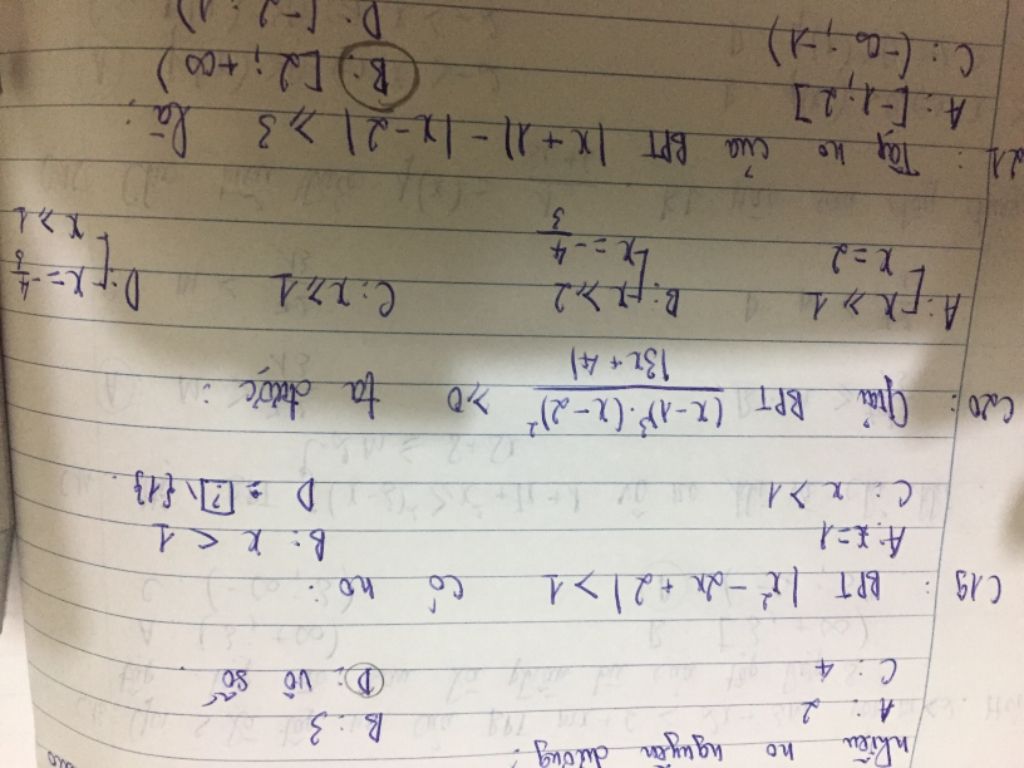 nhiêu no nguyên dương:
A: 2 B: 3
C: 4 D: vô số.
C19: BPT |x² - 2x + 2| > 1 có no:
A: x = 1 B: x < 1
C: x > 1 D = [?] \ {1}.
C20: Giải BPT \frac{(x-1)³.(x-2)²}{|3x+4|} ≥ 0 ta được:
A: [ x ≥ 1 B: [ x ≥ 2 C: x ≥ 1 D: [ x = -\frac{4}{3}
x = 2 x = -\frac{4}{3} x ≥ 1
21: Tập no của BPT |x + 1| - |x - 2| ≥ 3 là:
A: [-1; 2] B: [2; +∞)
C: (-∞; -1) D: [-2; 1)